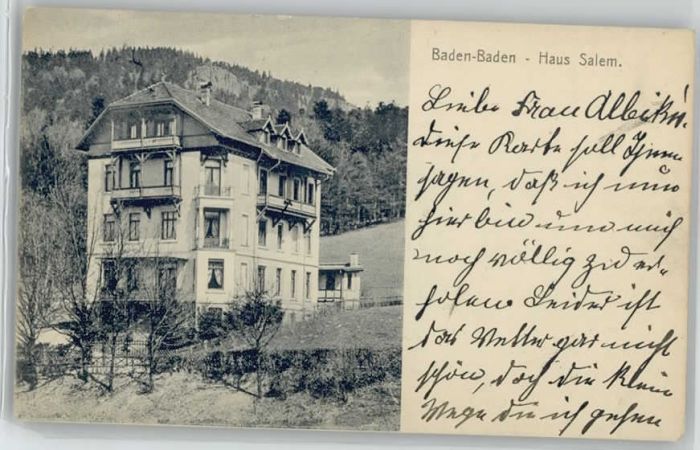 Baden-Baden - Haus Salem.
Liebe Frau Albikér.
diese Karte soll Ihnen
sagen, daß ich nun
hier bin um mich
noch völlig zu er-
holen. Leider ist
das Wetter gar nicht
schön, doch die klein
Wege die ich gehen